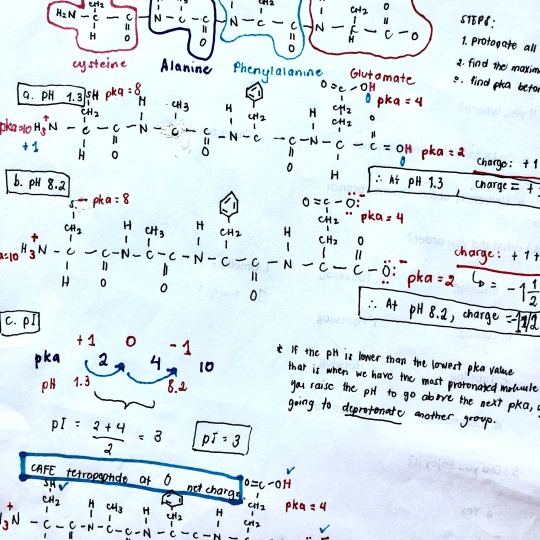 CH₂
CH₂
H₂N - C - C
N - C - C
N - C - C
N - C - C - O
H
O
O
O
cysteine
Alanine
Phenylalanine
Glutamate
STEPS:
1. protonate all
2. find the maxim
3. find pka befor
a. pH 1.3
SH pka = 8
CH₃
O=C-OH
pka = 4
CH₂
CH₂
CH₂
pka=10 H₃N⁺ - C - C - N - C - C - N - C - C - N - C - C = OH pka = 2
+1
H
O
charge: +1
∴ At pH 1.3, charge = +
b. pH 8.2
S⁻ pka = 8
O=C-O:⁻
pka = 4
CH₂
CH₃
CH₂
CH₂
CH₂
a=10 H₃N⁺ - C - C - N - C - C - N - C - C - N - C - C - O:⁻
pka = 2
H
O
O
O
charge: +1+
↳ = -1 1/2
∴ At pH 8.2, charge = -1 1/2
c. pI
+1 0 -1
pka 2 4 10
pH 1.3 8.2
pI = 2+4 / 2 = 3
pI = 3
* If the pH is lower than the lowest pka value
that is when we have the most protonated molecule
you raise the pH to go above the next pka,
going to deprotonate another group.
CAFE tetrapeptide at 0 net charge
SH ✓
O=C-OH ✓
CH₂
CH₃
CH₂
CH₂
pka = 4
₃N - C - C - N - C - C - N - C - C - N